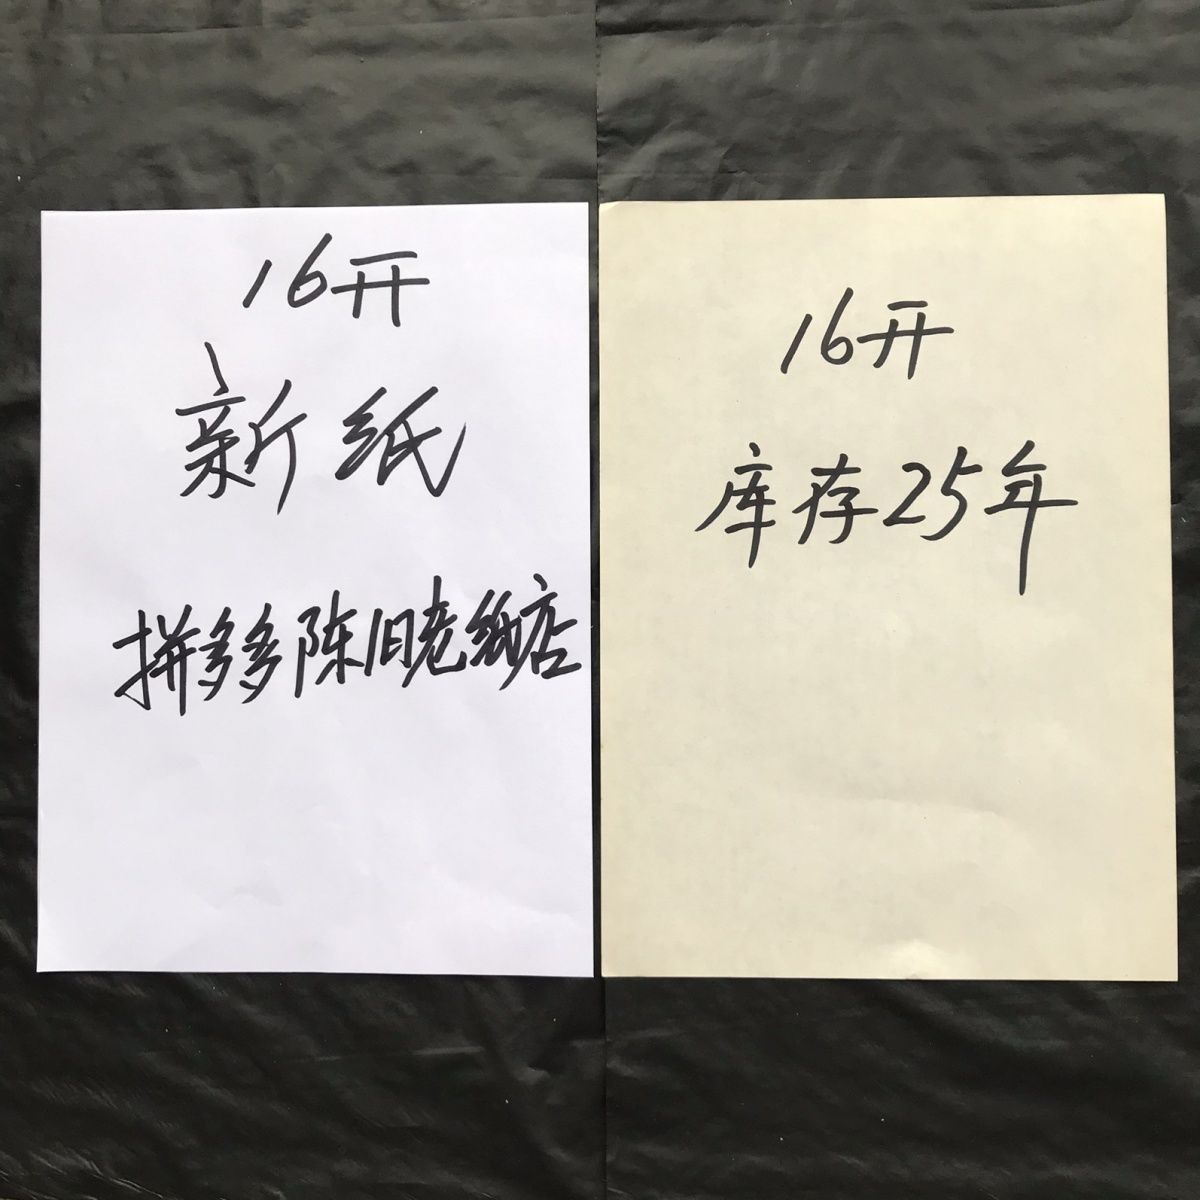 16开
新纸
拼多多陈旧老纸店
16开
库存25年